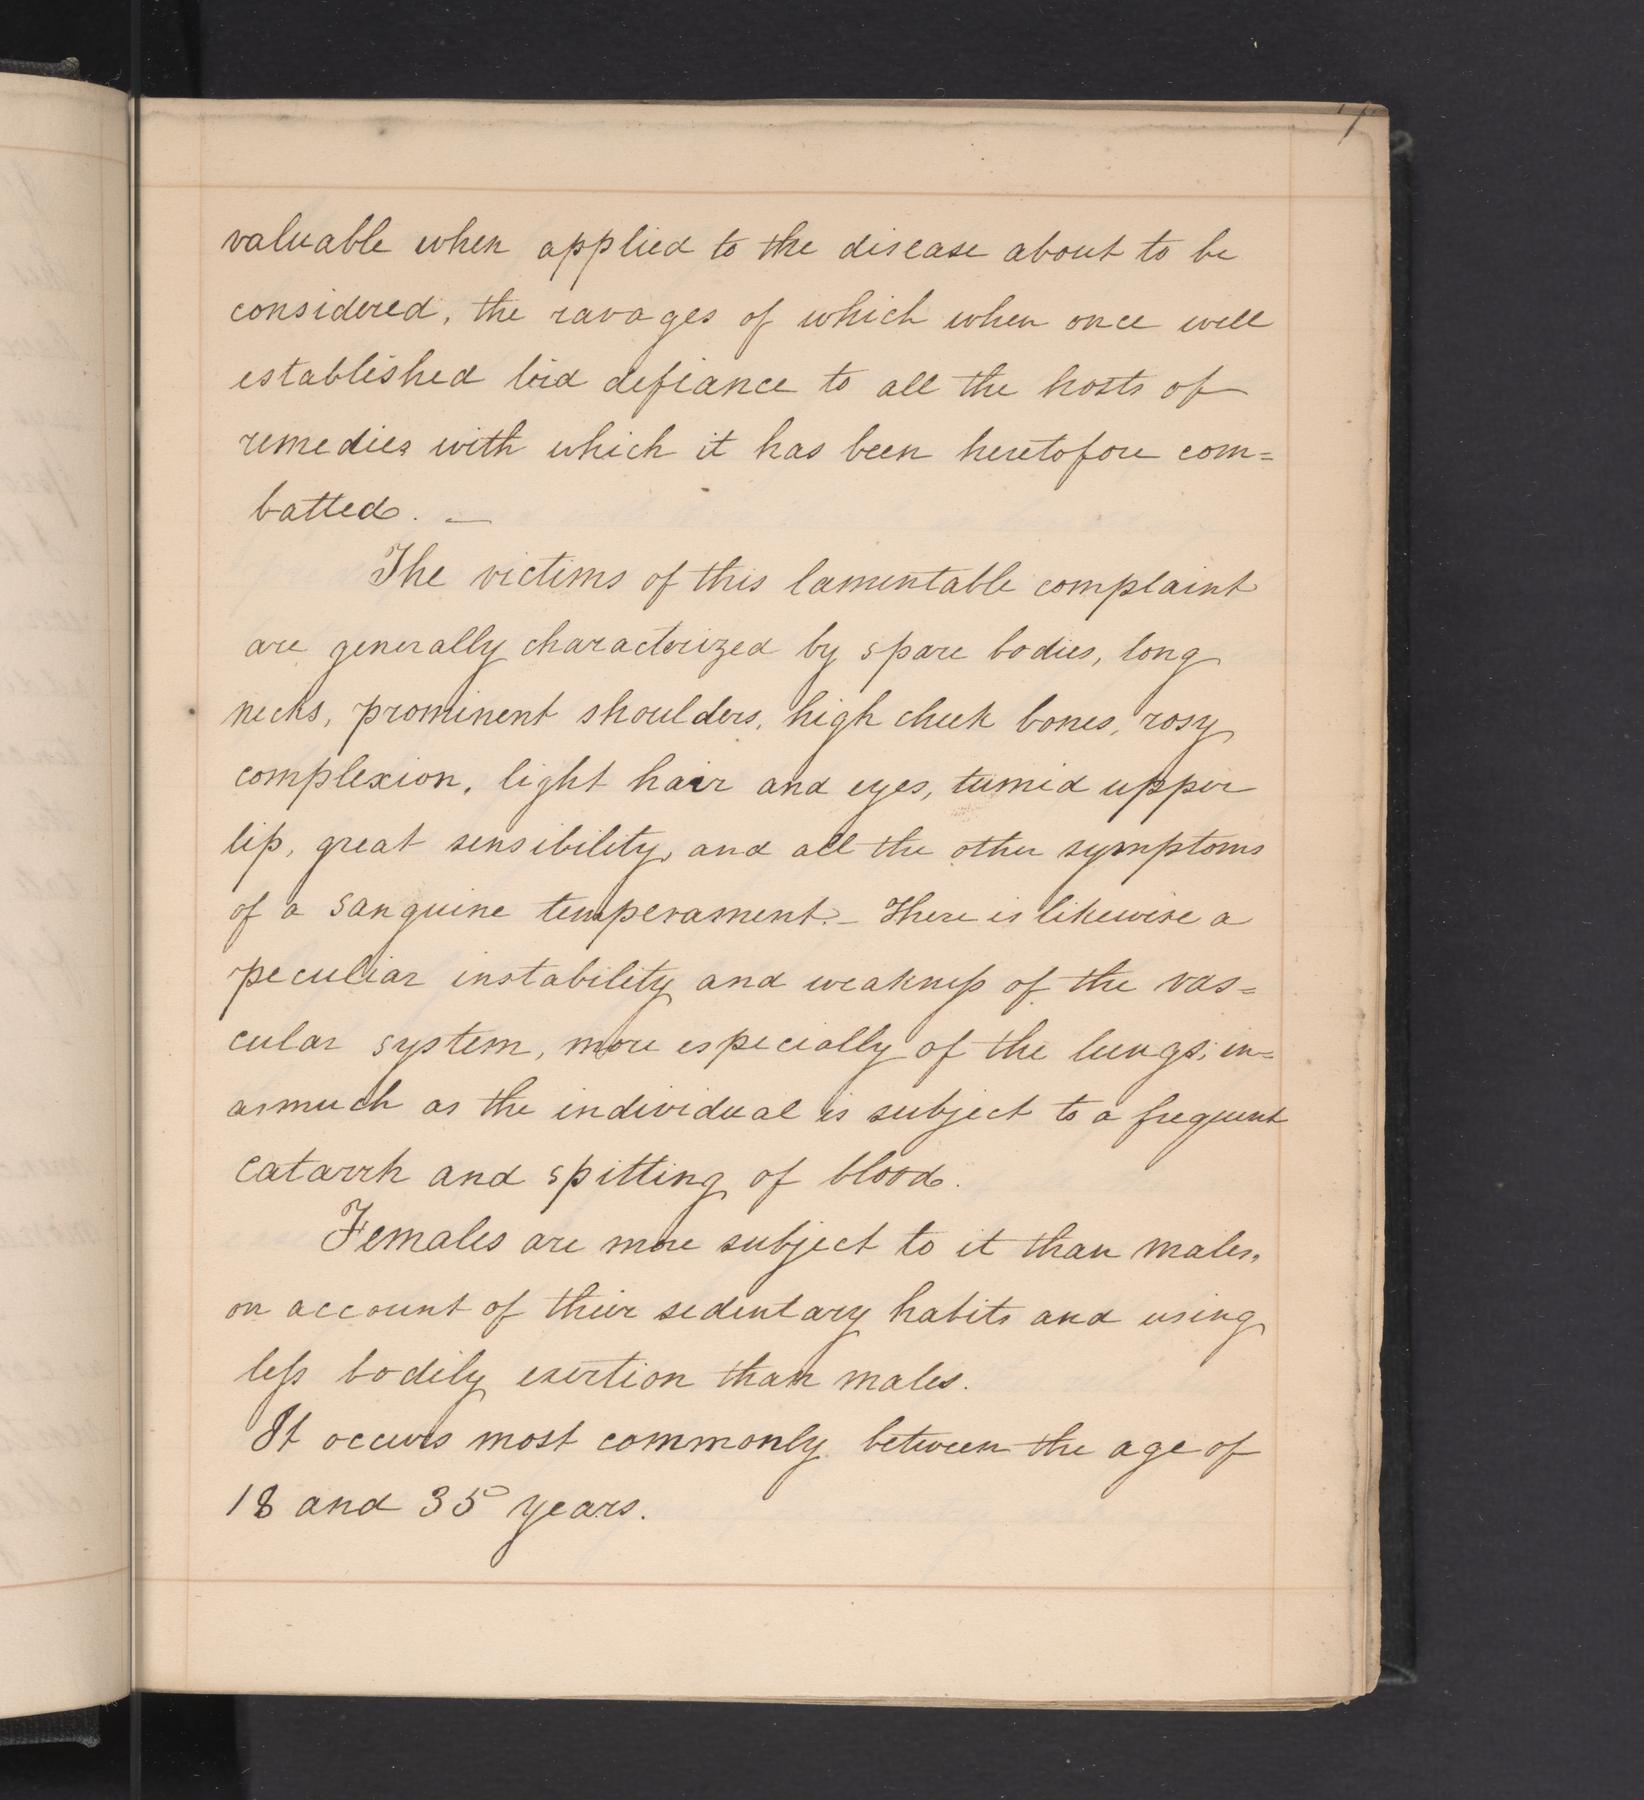 valuable when applied to the disease about to be
considered, the ravages of which when once well
established bid defiance to all the hosts of
remedies with which it has been heretofore com=
batted. —
The victims of this lamentable complaint
are generally characterized by spare bodies, long
necks, prominent shoulders, high cheek bones, rosy
complexion, light hair and eyes, tumid upper
lip, great sensibility, and all the other symptoms
of a sanguine temperament. — There is likewise a
peculiar instability and weakness of the vas=
cular system, more especially of the lungs; in=
asmuch as the individual is subject to a frequent
catarrh and spitting of blood.
Females are more subject to it than males,
on account of their sedentary habits and using
less bodily exertion than males.
It occurs most commonly between the age of
18 and 35 years.